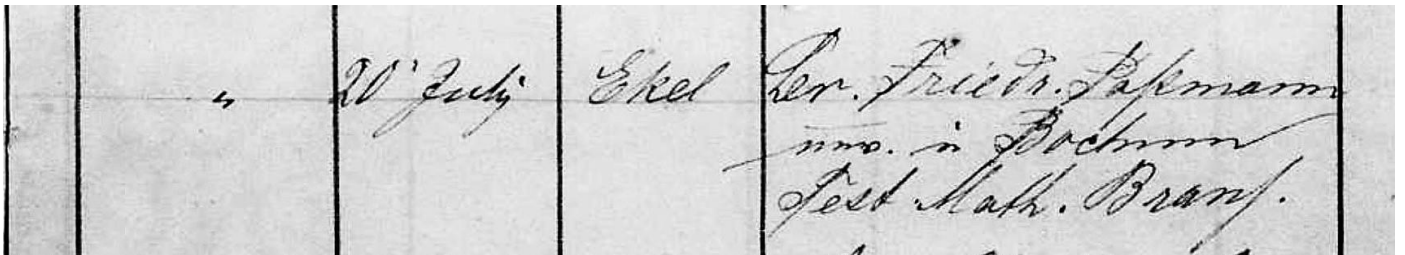 " 20' July Ekel Ler. Friedr. Paßmann
in Bochum
Test. Math. Brans.